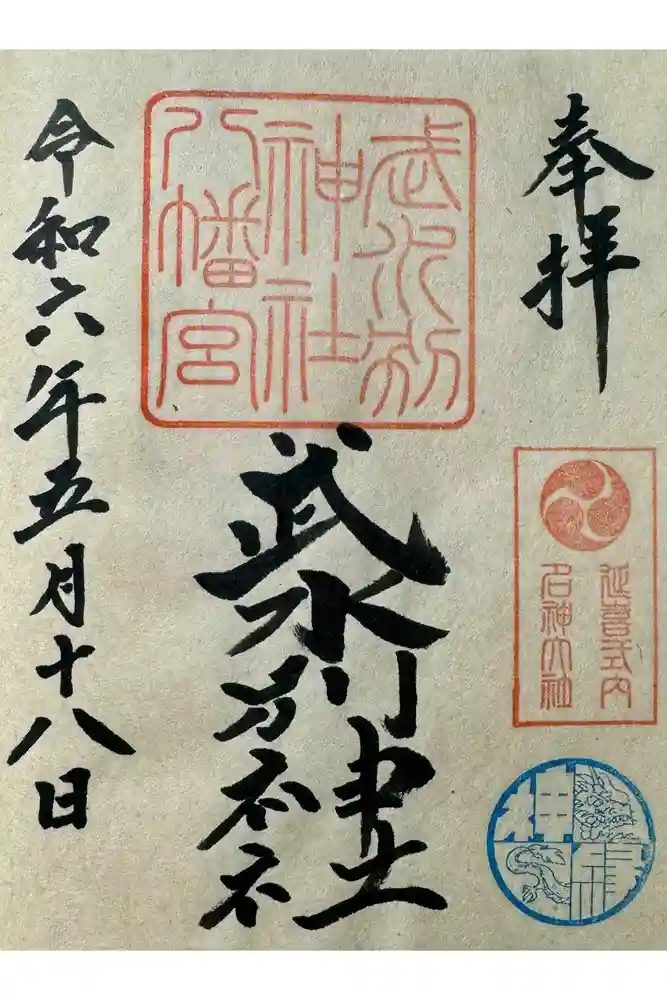 奉拝
延喜式内
名神大社
武水別神社
武水別
神社
八幡宮
令和六年五月十八日